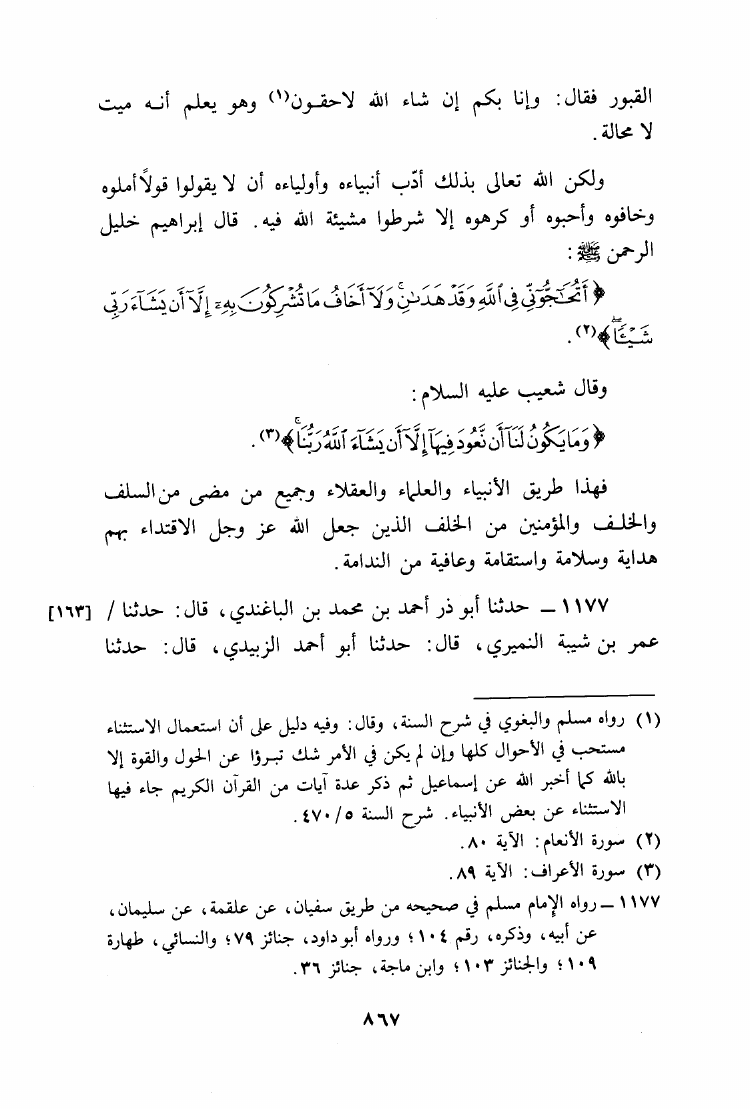 القبور فقال: وإنا بكم إن شاء الله لاحقون(١) وهو يعلم أنه ميت
لا محالة.
ولكن الله تعالى بذلك أدّب أنبياءه وأولياءه أن لا يقولوا قولاً أملوه
وخافوه وأحبوه أو كرهوه إلا شرطوا مشيئة الله فيه. قال إبراهيم خليل
الرحمن ﷺ:
﴿أَتُحَٰٓجُّوٓنِّي فِي ٱللَّهِ وَقَدْ هَدَىٰنِۚ وَلَآ أَخَافُ مَا تُشْرِكُونَ بِهِۦٓ إِلَّآ أَن يَشَآءَ رَبِّي
شَيْـًٔاۗ﴾(٢).
وقال شعيب عليه السلام:
﴿وَمَا يَكُونُ لَنَآ أَن نَّعُودَ فِيهَآ إِلَّآ أَن يَشَآءَ ٱللَّهُ رَبُّنَاۚ﴾(٣).
فهذا طريق الأنبياء والعلماء والعقلاء وجميع من مضى من السلف
والخلف والمؤمنين من الخلف الذين جعل الله عز وجل الاقتداء بهم
هداية وسلامة واستقامة وعافية من الندامة.
١١٧٧ ــ حدثنا أبو ذر أحمد بن محمد بن الباغندي، قال: حدثنا / [١٦٣]
عمر بن شيبة النميري، قال: حدثنا أبو أحمد الزبيدي، قال: حدثنا
(١) رواه مسلم والبغوي في شرح السنة، وقال: وفيه دليل على أن استعمال الاستثناء
مستحب في الأحوال كلها وإن لم يكن في الأمر شك تبرؤا عن الحول والقوة إلا
بالله كما أخبر الله عن إسماعيل ثم ذكر عدة آيات من القرآن الكريم جاء فيها
الاستثناء عن بعض الأنبياء. شرح السنة ٤٧٠/٥.
(٢) سورة الأنعام: الآية ٨٠.
(٣) سورة الأعراف: الآية ٨٩.
١١٧٧ ــ رواه الإمام مسلم في صحيحه من طريق سفيان، عن علقمة، عن سليمان،
عن أبيه، وذكره، رقم ١٠٤؛ ورواه أبو داود، جنائز ٧٩؛ والنسائي، طهارة
١٠٩؛ والجنائز ١٠٣؛ وابن ماجة، جنائز ٣٦.
٨٦٧